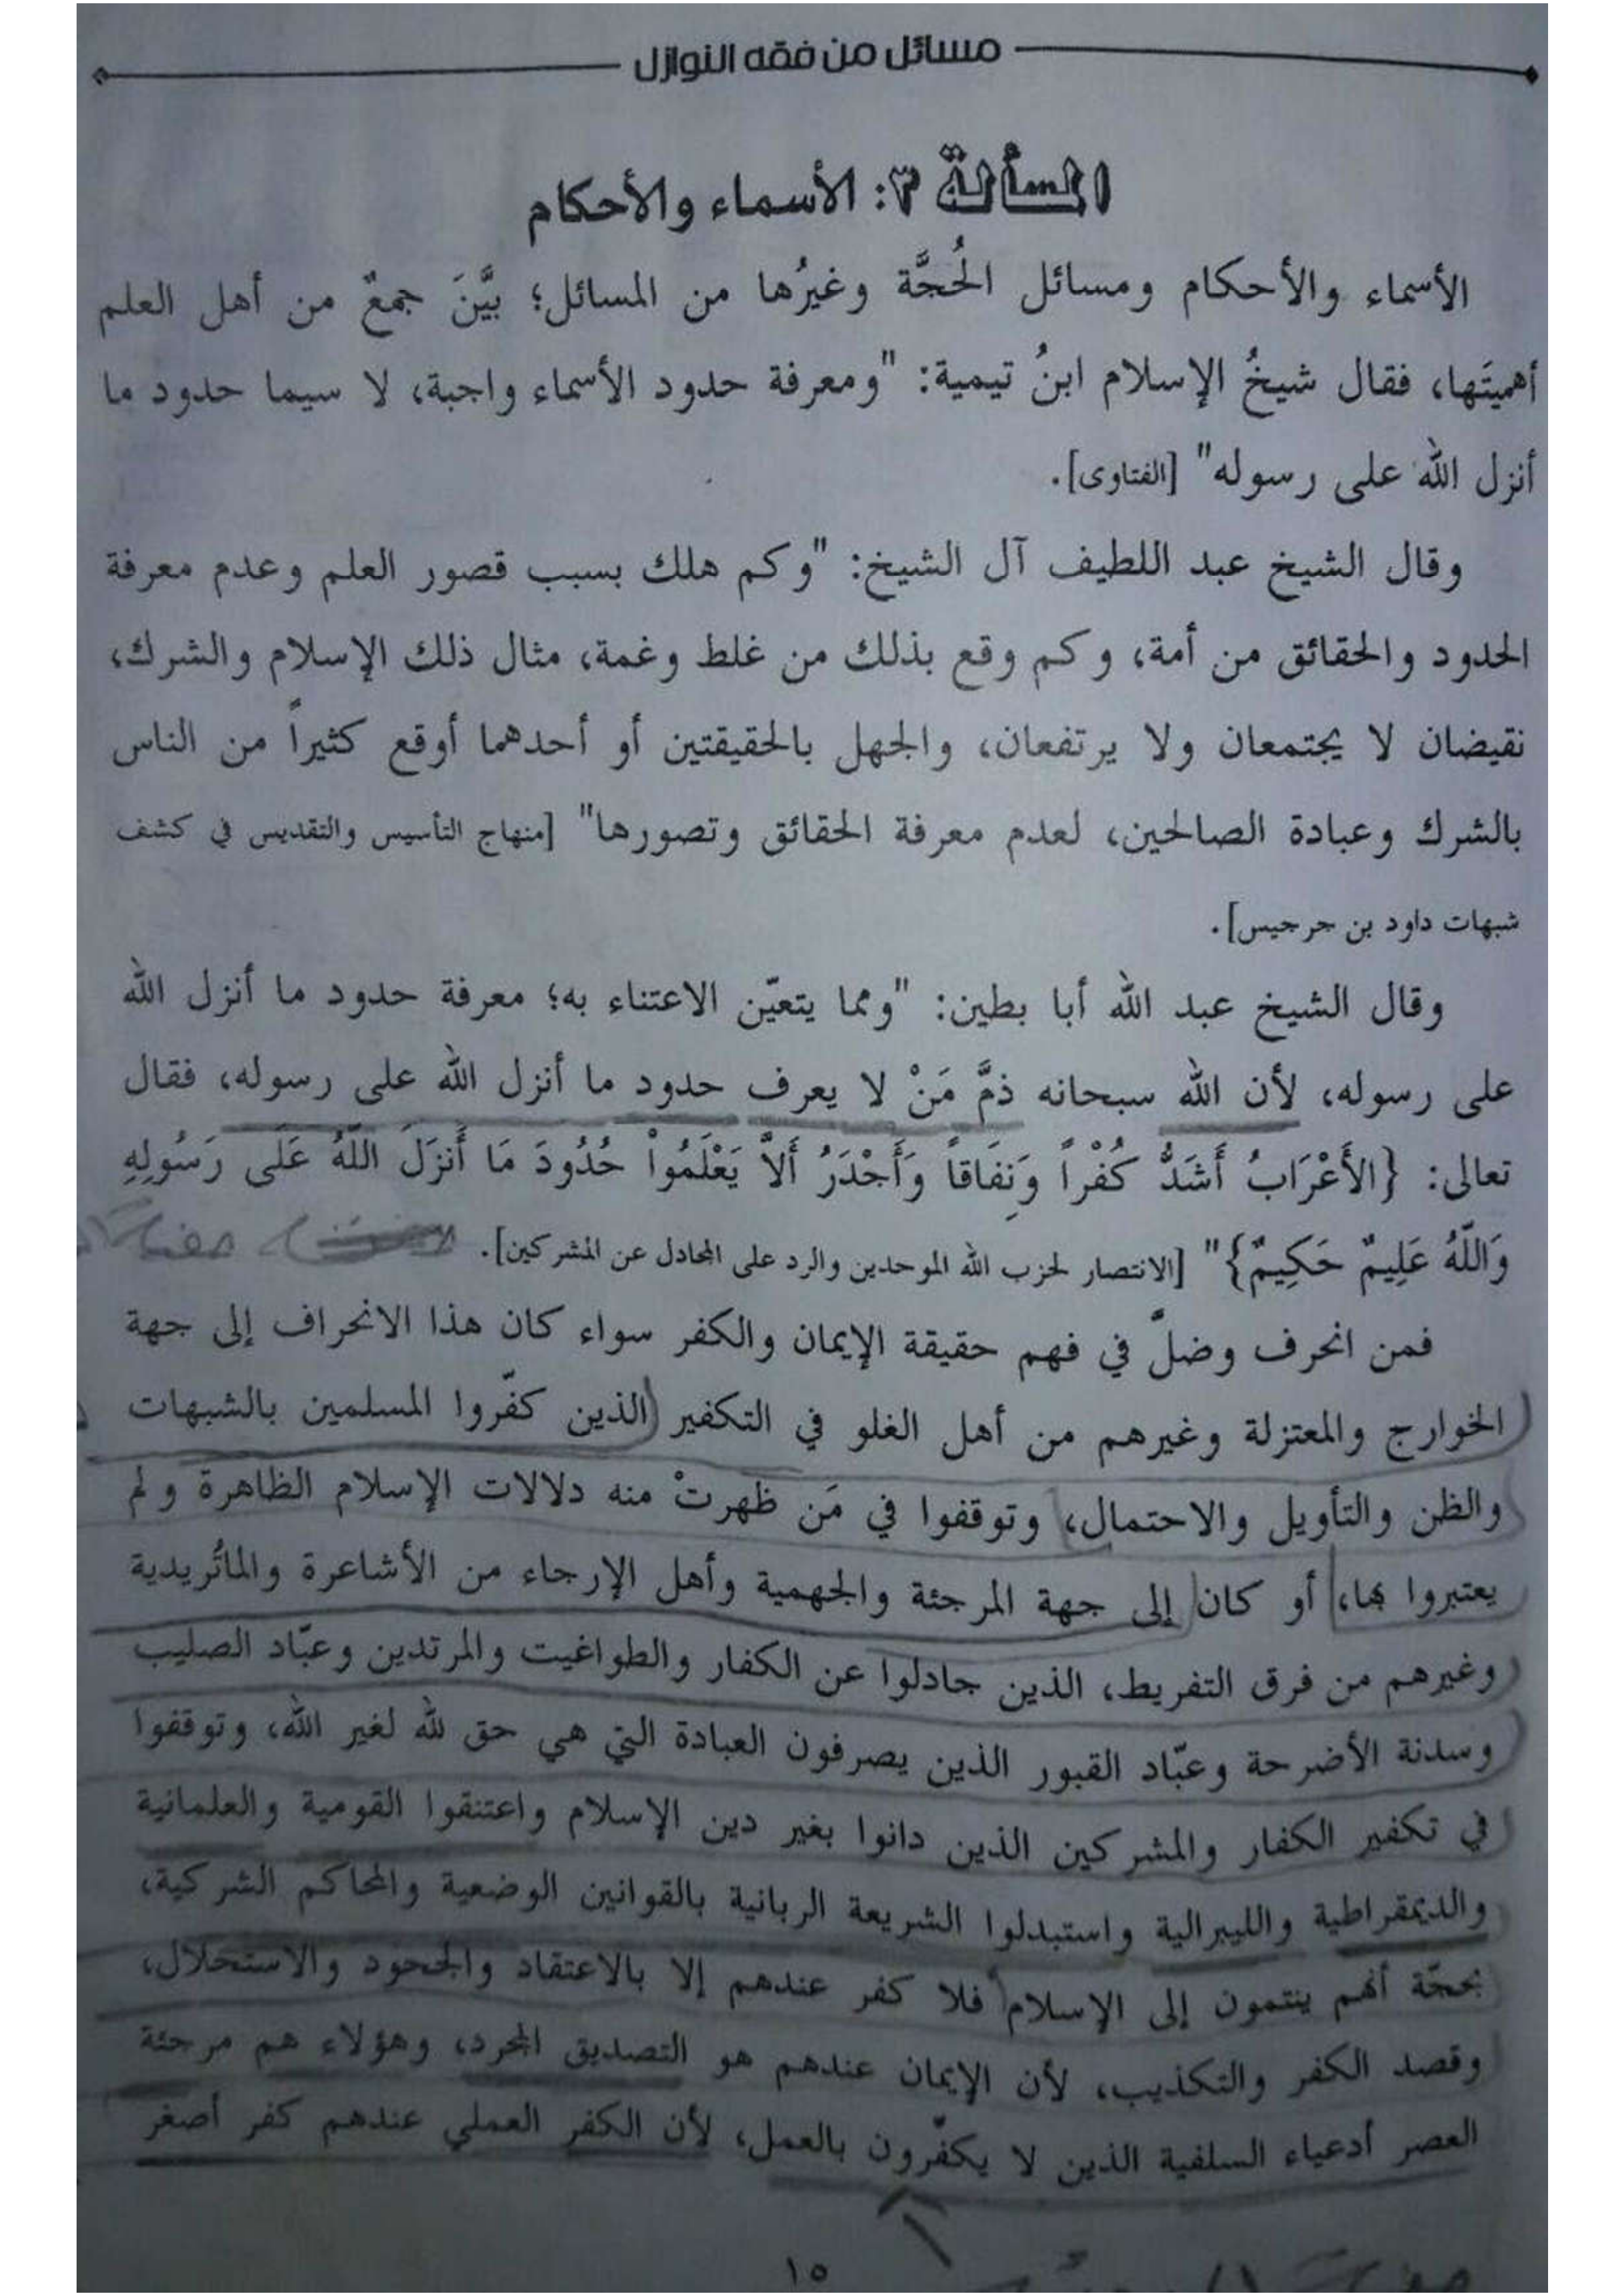 مسائل من فقه النوازل
المسألة ٣: الأسماء والأحكام
الأسماء والأحكام ومسائل الحُجَّة وغيرُها من المسائل؛ بيَّنَ جمعٌ من أهل العلم
أهميتَها، فقال شيخُ الإسلام ابنُ تيمية: "ومعرفة حدود الأسماء واجبة، لا سيما حدود ما
أنزل الله على رسوله" [الفتاوى].
وقال الشيخ عبد اللطيف آل الشيخ: "وكم هلك بسبب قصور العلم وعدم معرفة
الحدود والحقائق من أمة، وكم وقع بذلك من غلط وغمة، مثال ذلك الإسلام والشرك،
نقيضان لا يجتمعان ولا يرتفعان، والجهل بالحقيقتين أو أحدهما أوقع كثيراً من الناس
بالشرك وعبادة الصالحين، لعدم معرفة الحقائق وتصورها" [منهاج التأسيس والتقديس في كشف
شبهات داود بن جرجيس].
وقال الشيخ عبد الله أبا بطين: "ومما يتعيّن الاعتناء به؛ معرفة حدود ما أنزل الله
على رسوله، لأن الله سبحانه ذمَّ مَنْ لا يعرف حدود ما أنزل الله على رسوله، فقال
تعالى: {الأَعْرَابُ أَشَدُّ كُفْراً وَنِفَاقاً وَأَجْدَرُ أَلاَّ يَعْلَمُواْ حُدُودَ مَا أَنزَلَ اللّهُ عَلَى رَسُولِهِ
وَاللّهُ عَلِيمٌ حَكِيمٌ}" [الانتصار لحزب الله الموحدين والرد على المجادل عن المشركين].
فمن انحرف وضلّ في فهم حقيقة الإيمان والكفر سواء كان هذا الانحراف إلى جهة
الخوارج والمعتزلة وغيرهم من أهل الغلو في التكفير الذين كفّروا المسلمين بالشبهات
والظن والتأويل والاحتمال، وتوقفوا في مَن ظهرتْ منه دلالات الإسلام الظاهرة ولم
يعتبروا بها، أو كان إلى جهة المرجئة والجهمية وأهل الإرجاء من الأشاعرة والماتُريدية
وغيرهم من فرق التفريط، الذين جادلوا عن الكفار والطواغيت والمرتدين وعبّاد الصليب
وسدنة الأضرحة وعبّاد القبور الذين يصرفون العبادة التي هي حق لله لغير الله، وتوقفوا
في تكفير الكفار والمشركين الذين دانوا بغير دين الإسلام واعتنقوا القومية والعلمانية
والديمقراطية والليبرالية واستبدلوا الشريعة الربانية بالقوانين الوضعية والمحاكم الشركية،
بحجّة أنهم ينتمون إلى الإسلام فلا كفر عندهم إلا بالاعتقاد والجحود والاستحلال،
وقصد الكفر والتكذيب، لأن الإيمان عندهم هو التصديق المجرد، وهؤلاء هم مرجئة
العصر أدعياء السلفية الذين لا يكفّرون بالعمل، لأن الكفر العملي عندهم كفر أصغر
١٥